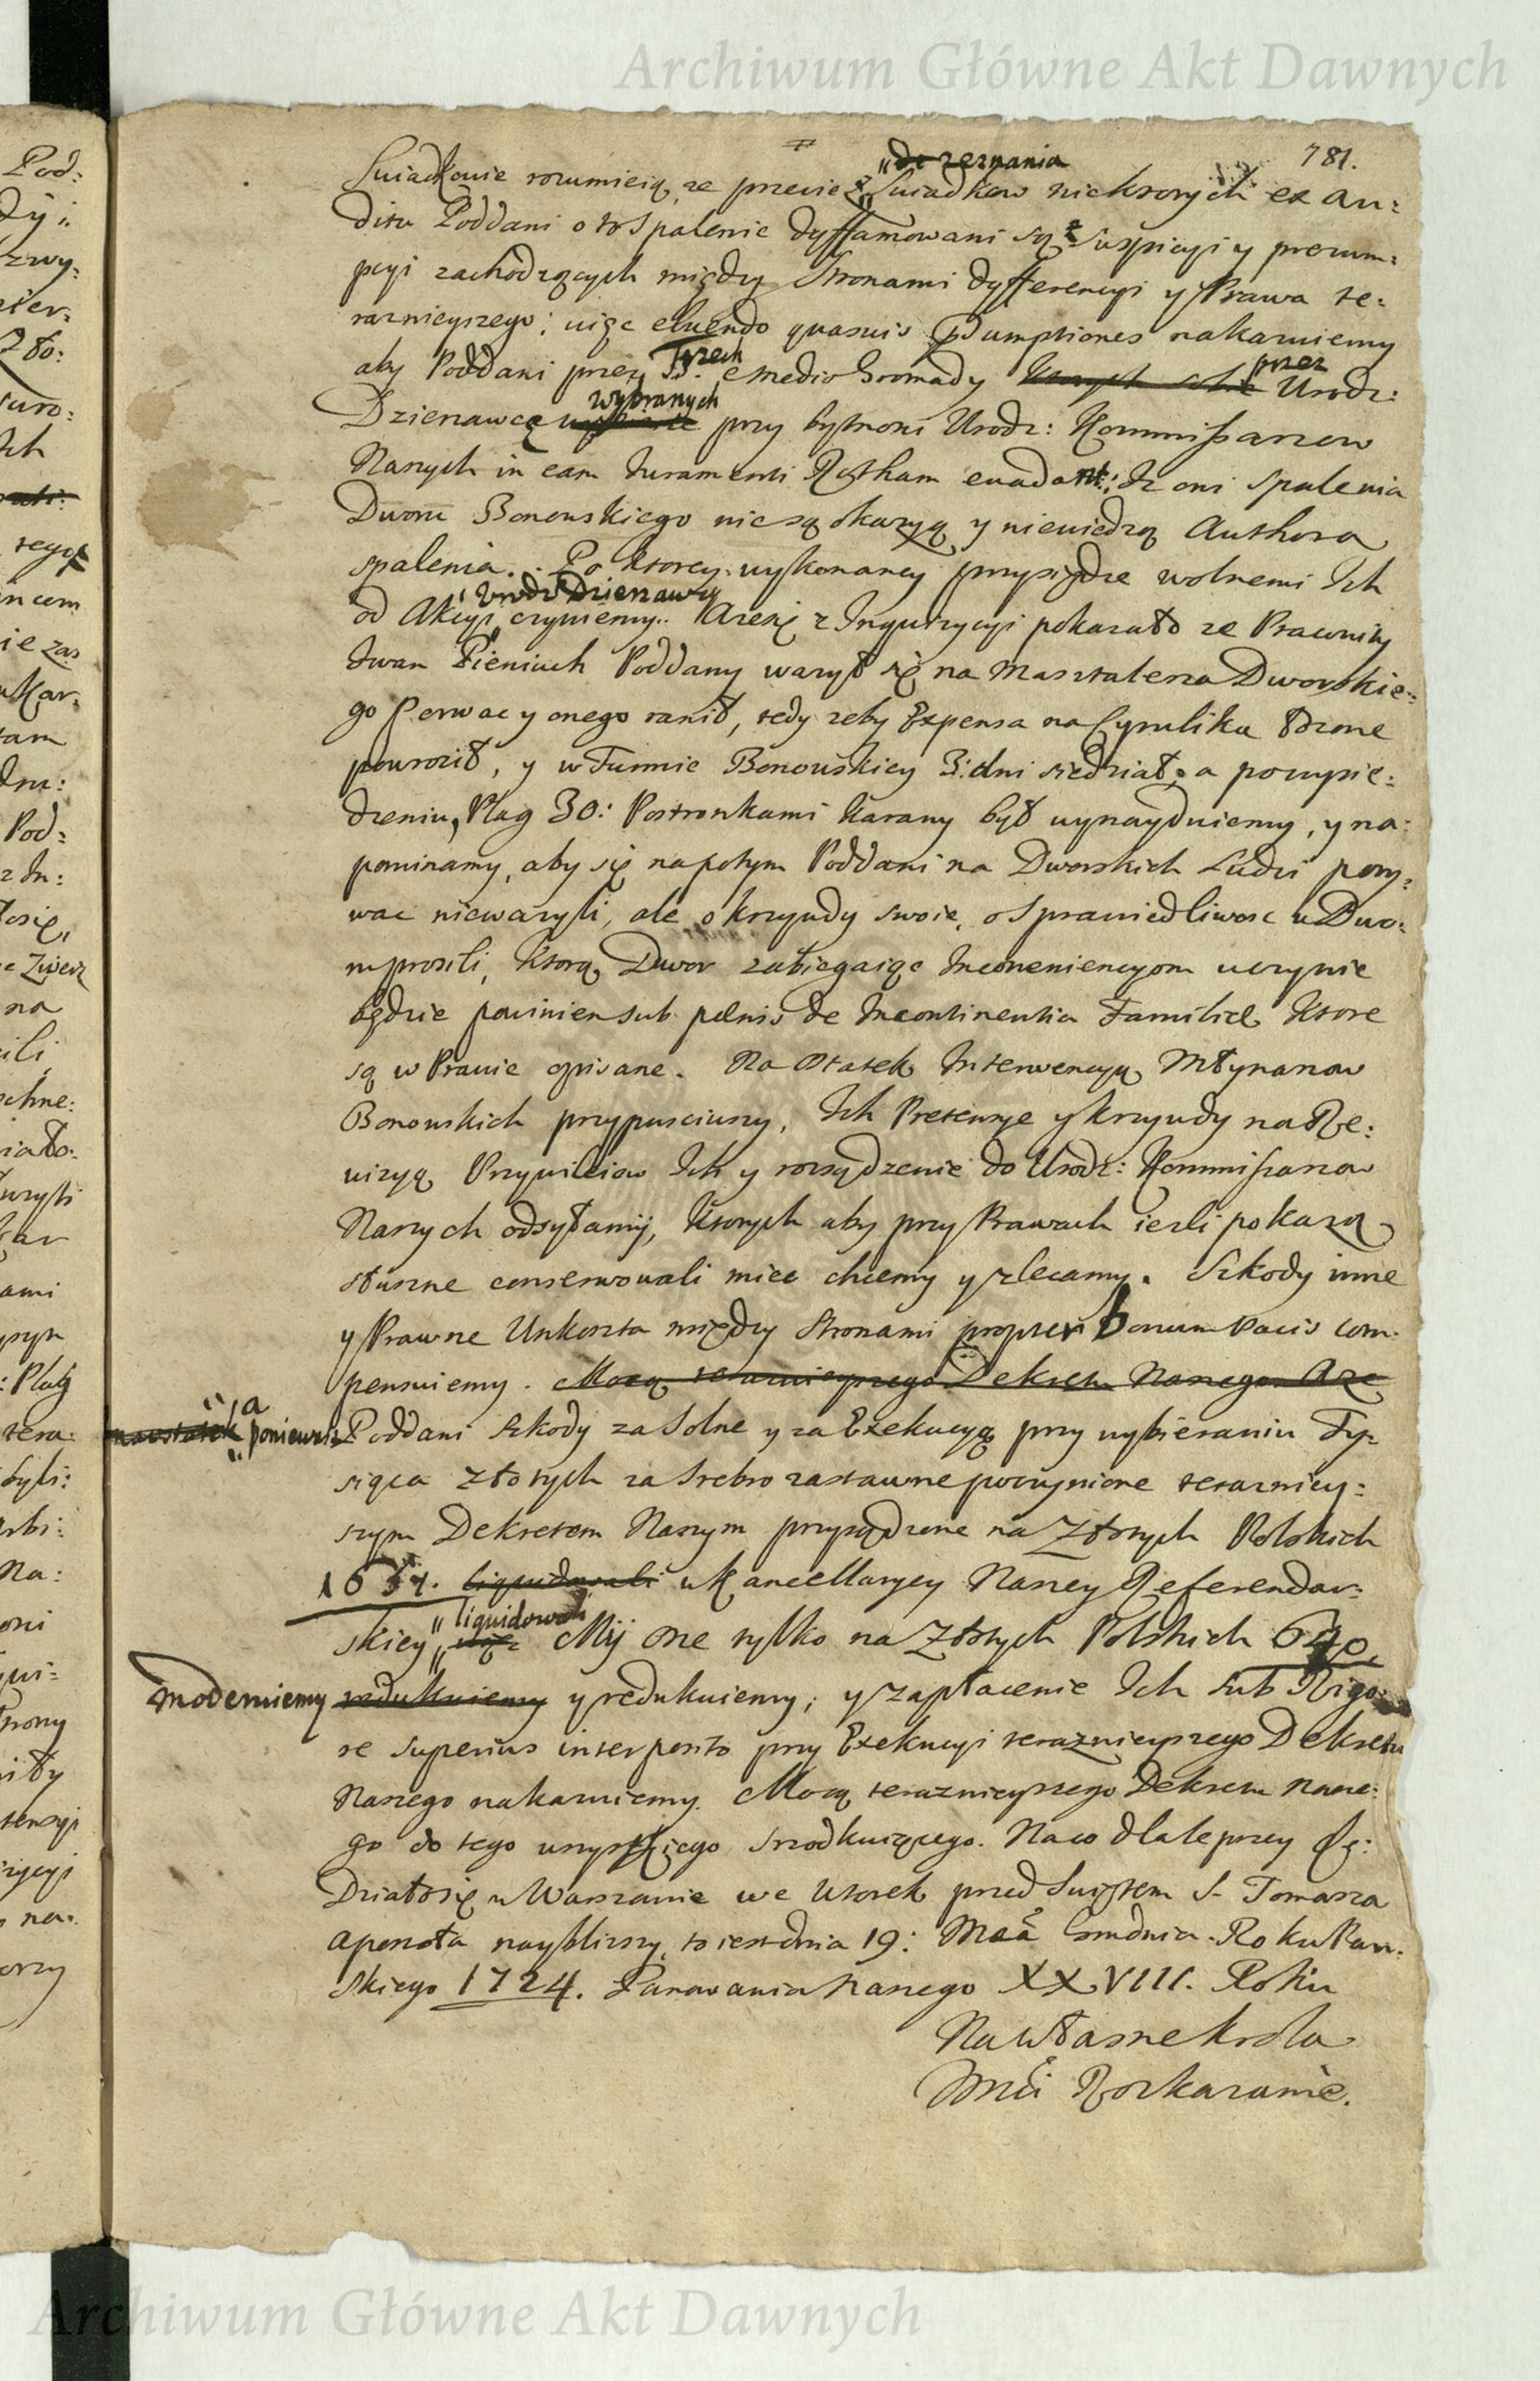 Archiwum Główne Akt Dawnych
781.
Swiadkowie rozumieią, ze przecie z "do zeznania" Swiadkow niektorych ex au:
ditu Poddani o to spalenie dyffamowani są z suspicyi y prezum:
pcyi zachodzących między Stronami dyfferencyi y Prawa te:
raznieyszego; więc eluendo quasvis præsumptiones nakazuiemy
aby Poddani przez Trzech e medio Gromady przez Urodz:
Dzierzawcę wybranych przy bytnosci Urodz: Kommissarzow
Naszych in eam Iuramenti Rotham evadant: Iz oni spalenia
Dworu Bonowskiego nie są okazyą y niewiedzą Authora
spalenia. Po ktorey wykonaney przysiędze wolnemi Ich
od Akcyi Urodz: Dzierzawcy czyniemy. Azesię z Inquizycyi pokazało ze Pracowity
Iwan Pieniuch Poddany wazył się na Masztalerza Dworskie:
go porwac y onego ranił, tedy zeby Expensa na Cyrulika łozone
powrocił, y w Turmie Bonowskiey 3: dni siedział, a po wysie:
dzeniu, Plag 30: Postronkami karany był wynayduiemy, y na:
pominamy, aby się napotym Poddani na Dworskich Ludzi pory:
wac niewazyli, ale o krzywdy swoie, o Sprawiedliwosc u Dwo:
ru prosili, Ktorą Dwor zabiegaiąc Inconveniencyom uczynic
będzie powinien sub pœnis de Incontinentia Familiæ Ktore
są w Prawie opisane. Na Ostatek Interwencyą Młynarzow
Bonowskich przypusciwszy, Ich Pretensye y krzywdy na Re:
wizyą Przywileiow Ich y rozsądzenie do Urodz: Kommissarzow
Naszych odsyłamy, Ktorych aby przy Prawach iezli pokazą
słuszne conserwowali miec chcemy y zlecamy. Szkody inne
y Prawne Unkoszta między Stronami propter bonum Pacis com:
pensuiemy. Mocą teraznieyszego Dekretu Naszego Aze
naostatek a poniewaz Poddani szkody za Solne y za Exekucyą przy wybieraniu Ty:
siąca złotych za srebro zastawne poczynione teraznie:
szym Dekretem Naszym przysądzone na Złotych Polskich
liquidowali w Kancellaryey Naszey Referendar:
skiey "liquidowali więc My one tylko na Złotych Polskich
moderuiemy redukuiemy y redukuiemy; y zapłacenie Ich sub Rigo:
re superius interposito przy Exekucyi teraznieyszego Dekretu
Naszego nakazuiemy. Mocą teraznieyszego Dekretu Nasze:
go do tego wszystkiego srzodkuiącego. Naco dla lepszey
Działosię w Warszawie we Wtorek przed Swiętem S. Tomasza
Apostoła nayblizszy, to iest dnia 19: Msca Grudnia Roku Pan:
skiego 1724. Panowania Naszego XXVIII. Roku
Na własne krola
Jmci Rozkazanie.
Archiwum Główne Akt Dawnych